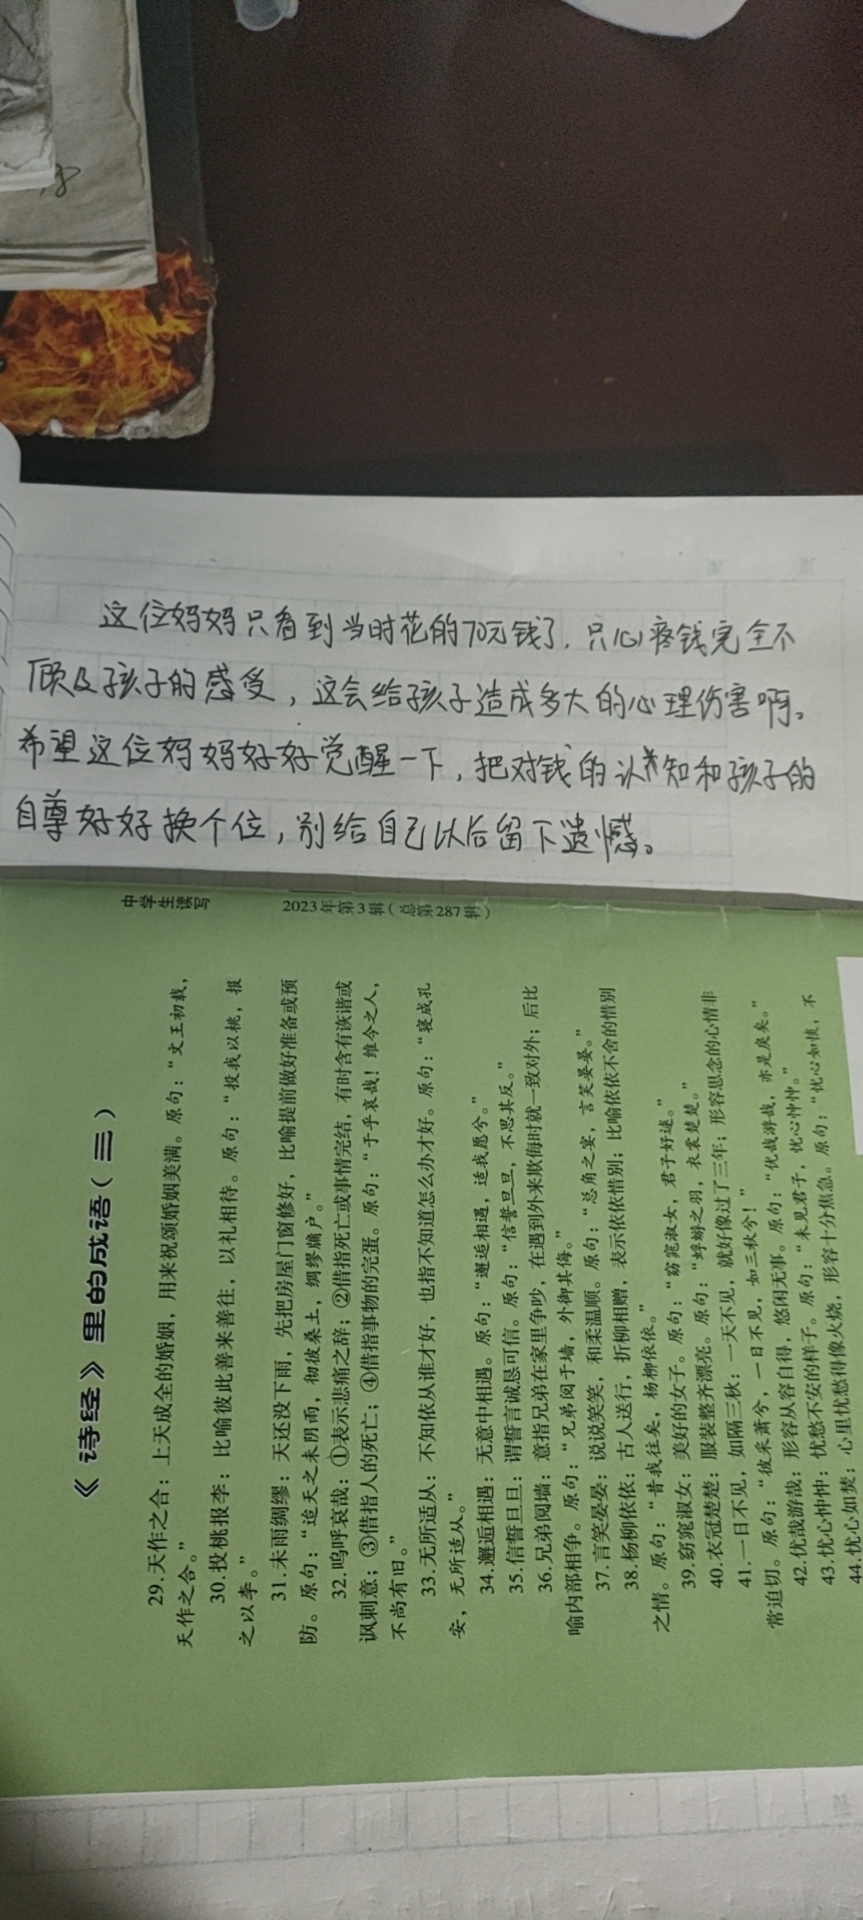 这位妈妈只看到当时花的70元钱了，只心疼钱完全不
顾及孩子的感受，这会给孩子造成多大的心理伤害啊。
希望这位妈妈好好觉醒一下，把对钱的认知和孩子的
自尊好好换个位，别给自己以后留下遗憾。
中学生读写
2023年第3辑（总第287辑）
《诗经》里的成语（三）
29.天作之合：上天成全的婚姻，用来祝颂婚姻美满。原句：“文王初载，
天作之合。”
30.投桃报李：比喻彼此善来善往，以礼相待。原句：“投我以桃，报
之以李。”
31.未雨绸缪：天还没下雨，先把房屋门窗修好，比喻提前做好准备或预
防。原句：“迨天之未阴雨，彻彼桑土，绸缪牖户。”
32.呜呼哀哉：①表示悲痛之辞；②借指死亡或事情完结，有时含有诙谐或
讽刺意；③借指人的死亡；④借指事物的完蛋。原句：“于乎哀哉！维今之人，
不尚有旧。”
33.无所适从：不知依从谁才好，也指不知道怎么办才好。原句：“寝成孔
安，无所适从。”
34.邂逅相遇：无意中相遇。原句：“邂逅相遇，适我愿兮。”
35.信誓旦旦：谓誓言诚恳可信。原句：“信誓旦旦，不思其反。”
36.兄弟阋墙：意指兄弟在家里争吵，在遇到外来欺侮时就一致对外；后比
喻内部相争。原句：“兄弟阋于墙，外御其侮。”
37.言笑晏晏：说说笑笑，和柔温顺。原句：“总角之宴，言笑晏晏。”
38.杨柳依依：古人送行，折柳相赠，表示依依惜别；比喻依依不舍的惜别
之情。原句：“昔我往矣，杨柳依依。”
39.窈窕淑女：美好的女子。原句：“窈窕淑女，君子好逑。”
40.衣冠楚楚：服装整齐漂亮。原句：“蜉蝣之羽，衣裳楚楚。”
41.一日不见，如隔三秋：一天不见，就好像过了三年；形容思念的心情非
常迫切。原句：“彼采萧兮，一日不见，如三秋兮！”
42.优哉游哉：形容从容自得，悠闲无事。原句：“优哉游哉，亦是戾矣。”
43.忧心忡忡：忧愁不安的样子。原句：“未见君子，忧心忡忡。”
44.忧心如焚：心里忧愁得像火烧，形容十分焦急。原句：“忧心如惔，不